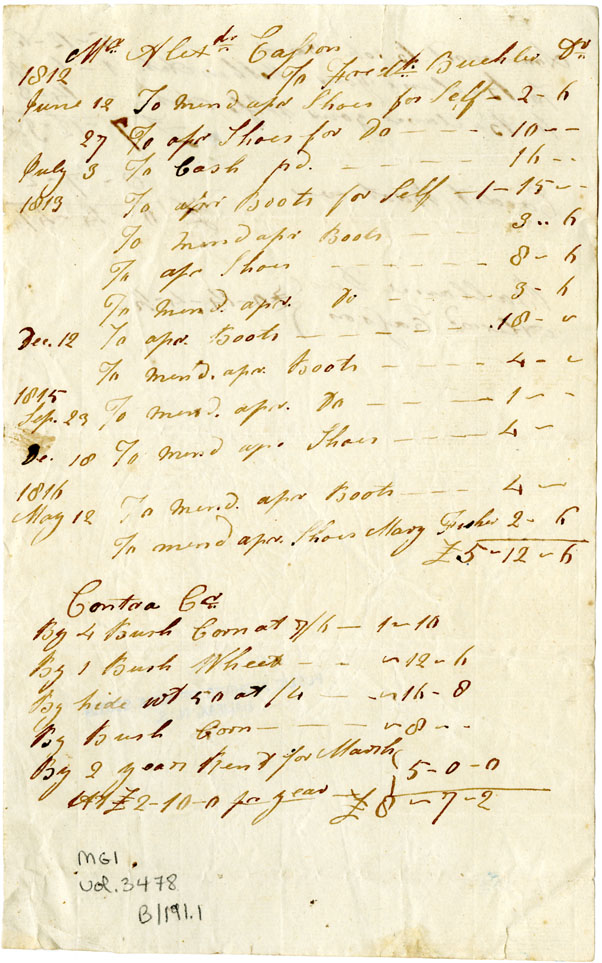 Mr Alexdr Casson
1812 To Fredk. Buehler Dr
June 12 To mend apr Shoes for Self - 2 - 6
27 To apr Shoes for Do - - - - 10 - -
July 3 To Cash pd. - - - - 16 - -
1813 To apr Boots for Self - 1 - 15 - -
To mend apr Boots - - - 3 .. 6
To apr Shoes - - - - - 8 - 6
To mend. apr. Do - - - 3 - 6
Dec. 12 To apr. Boots - - - - - - 18 - -
To mend. apr. Boots - - - - 4 - -
1815
Sep. 23 To mend. apr. Do - - - 1 - -
De. 18 To mend apr. Shoes - - - - 4 -
1816
May 12 To mend. apr Boots - - - - 4 -
To mend apr. Shoes Mary Fisher 2 - 6
£ 5 - 12 - 6
Contra Cr.
By 4 Bush Corn at 7/6 - 1 - 10
By 1 Bush Wheet - - - 12 - 6
By hide wt 50 at /4 - - 16 - 8
By Bush Corn - - - - - 8 - -
By 2 years Rent for Marsh
At £ 2 - 10 - 0 pr year - 5 - 0 - 0
£ 8 - 7 - 2
MG1
Vol. 3478
B/191.1